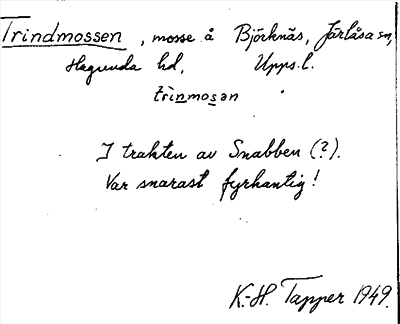 Trindmossen, mosse å Björknäs, Järlåsa sn,
Hagunda hd, Upps. l.
trìnmosan
I trakten av Snabben (?).
Var snarast fyrkantig!
K.-H. Tapper 1949.